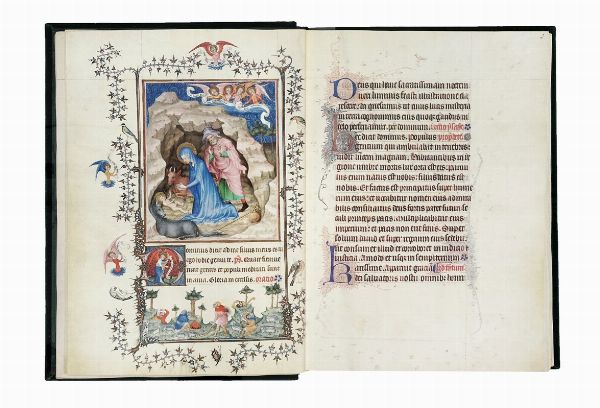 Dominus dixit ad me filius meus es tu
ego hodie genui te. ps. Quare fremue
runt gentes et populi meditati sunt
inania. Gloria in excelsis. oratio
Deus qui hanc sacratissimam noctem
veri luminis fecisti illustratione cla
rescere da quesumus ut cuius lucis misteria
in terra cognovimus eius quoque gaudiis in
celo perfruamur. per dominum.
hec dicit dominus. Populus
gentium qui ambulabat in tenebris
vidit lucem magnam. habitantibus in re
gione umbre mortis lux orta est eis. parvu
lus enim natus est nobis. filius datus est
nobis. Et factus est principatus super hume
rum eius: et vocabitur nomen eius admira
bilis consiliarius deus fortis pater futuri se
culi princeps pacis. Multiplicabitur eius
imperium: et pacis non erit finis. Super
solium david et super regnum eius sedebit
ut confirmet illud et corroboret in iudicio et
iusticia. amodo et usque in sempiternum.
Karissime. Apparuit gratia
dei salvatoris nostri omnibus homi